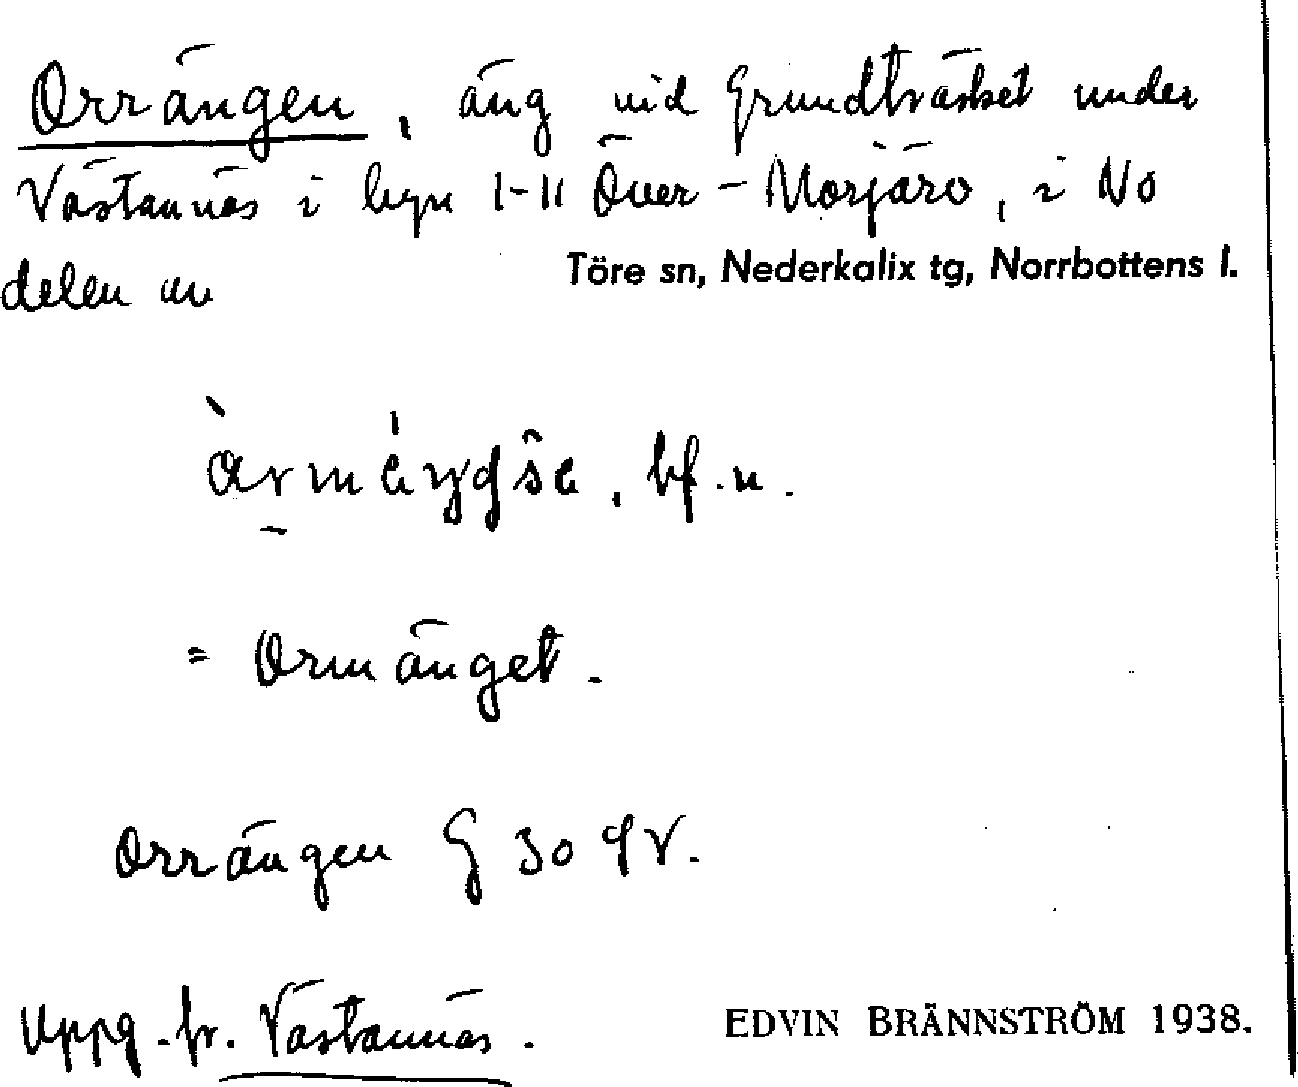 Orrängen, äng vid Grundträsket under
Västannäs i byn 1-11 Över-Morjärv, i NO
delen av Töre sn, Nederkalix tg, Norrbottens l.
bf. n.
= Ormänget.
Orrängen G 30 qv.
Uppg. fr. Västannäs.
EDVIN BRÄNNSTRÖM 1938.